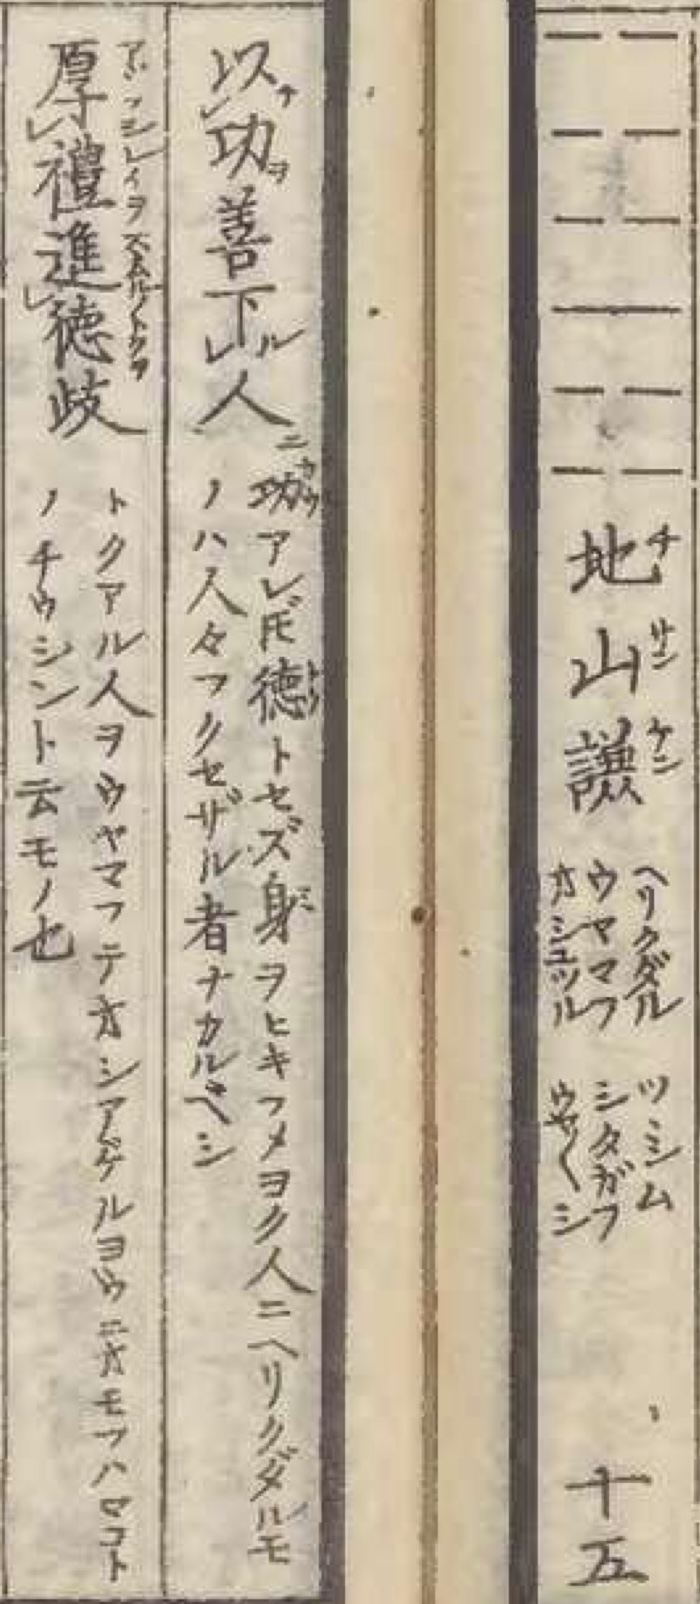 地山謙 十五
チ サン ケン
ヘリクダル ツヽシム
ウヤマフ シタガフ
オシユツル ウヤ〳〵シ
以功善下人
功アレ𪜈徳トセズ身ヲヒキフメヨク人ニヘリクダルモ
ノハ人々フクセザル者ナカルベシ
厚禮進徳歧
アツシレイヲ スムルノトクヲ
トクアル人ヲウヤマフテオシアゲルヨウニオモフハマコト
ノチウシント云モノ也